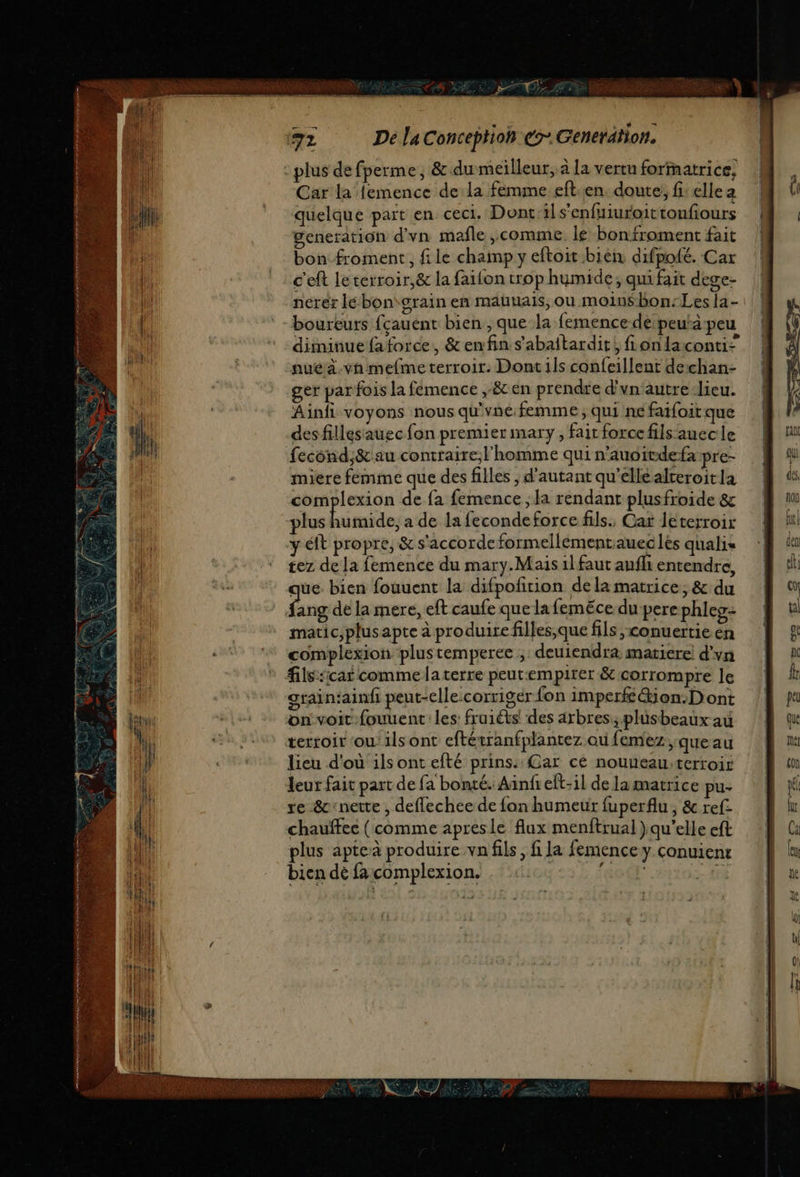 92 De la Conception & Generation.
plus de ſperme, & du meilleur, à la vertu formatrice,
Car la ſemence de la femme eſt en doute, ſi elle a
quelque part en ceci. Dont il s'enſuiuroit touſiours
generation d'vn maſle, comme le bon froment fait
bon froment, ſi le champ y eſtoit bien diſpoſé. Car
c'eſt le terroir, & la ſaiſon trop humide, qui fait dege-
nerer le bon grain en mauuais, ou moins bon. Les la-
boureurs ſçauent bien, que la ſemence de peu à peu
diminue ſa force, & enfin s'abaſtardit, ſi on la conti-
nuë à vn meſme terroir. Dont ils conſeillent de chan-
ger par fois la ſemence, & en prendre d'vn autre lieu.
Ainſi voyons nous qu'vne femme, qui ne faiſoit que
des filles auec ſon premier mary, fait force fils auec le
ſecond; & au contraire, l'homme qui n'auoit de ſa pre-
miere femme que des filles, d'autant qu'elle alteroit la
complexion de ſa ſemence, la rendant plus froide &
plus humide, a de la ſeconde force fils. Car le terroir
y eſt propre, & s'accorde formellement auec les quali-
tez de la ſemence du mary. Mais il faut auſſi entendre,
que bien ſouuent la diſpoſition de la matrice, & du
ſang de la mere, eſt cauſe que la ſeméce du pere phleg-
matic, plus apte à produire filles, que fils, conuertie en
complexion plus temperee, deuiendra matiere d'vn
fils: car comme la terre peut empirer & corrompre le
grain: ainſi peut-elle corriger ſon imperfection. Dont
on voit ſouuent les fruicts des arbres, plus beaux au
terroir ou ils ont eſté tranſplantez ou ſemez, que au
lieu d'où ils ont eſté prins. Car ce nouueau terroir
leur fait part de ſa bonté. Ainſi eſt-il de la matrice pu-
re & nette, deſſechee de ſon humeur ſuperflu, & reſ-
chauffee (comme apres le flux menſtrual) qu'elle eſt
plus apte à produire vn fils, ſi la ſemence y conuient
bien de ſa complexion.